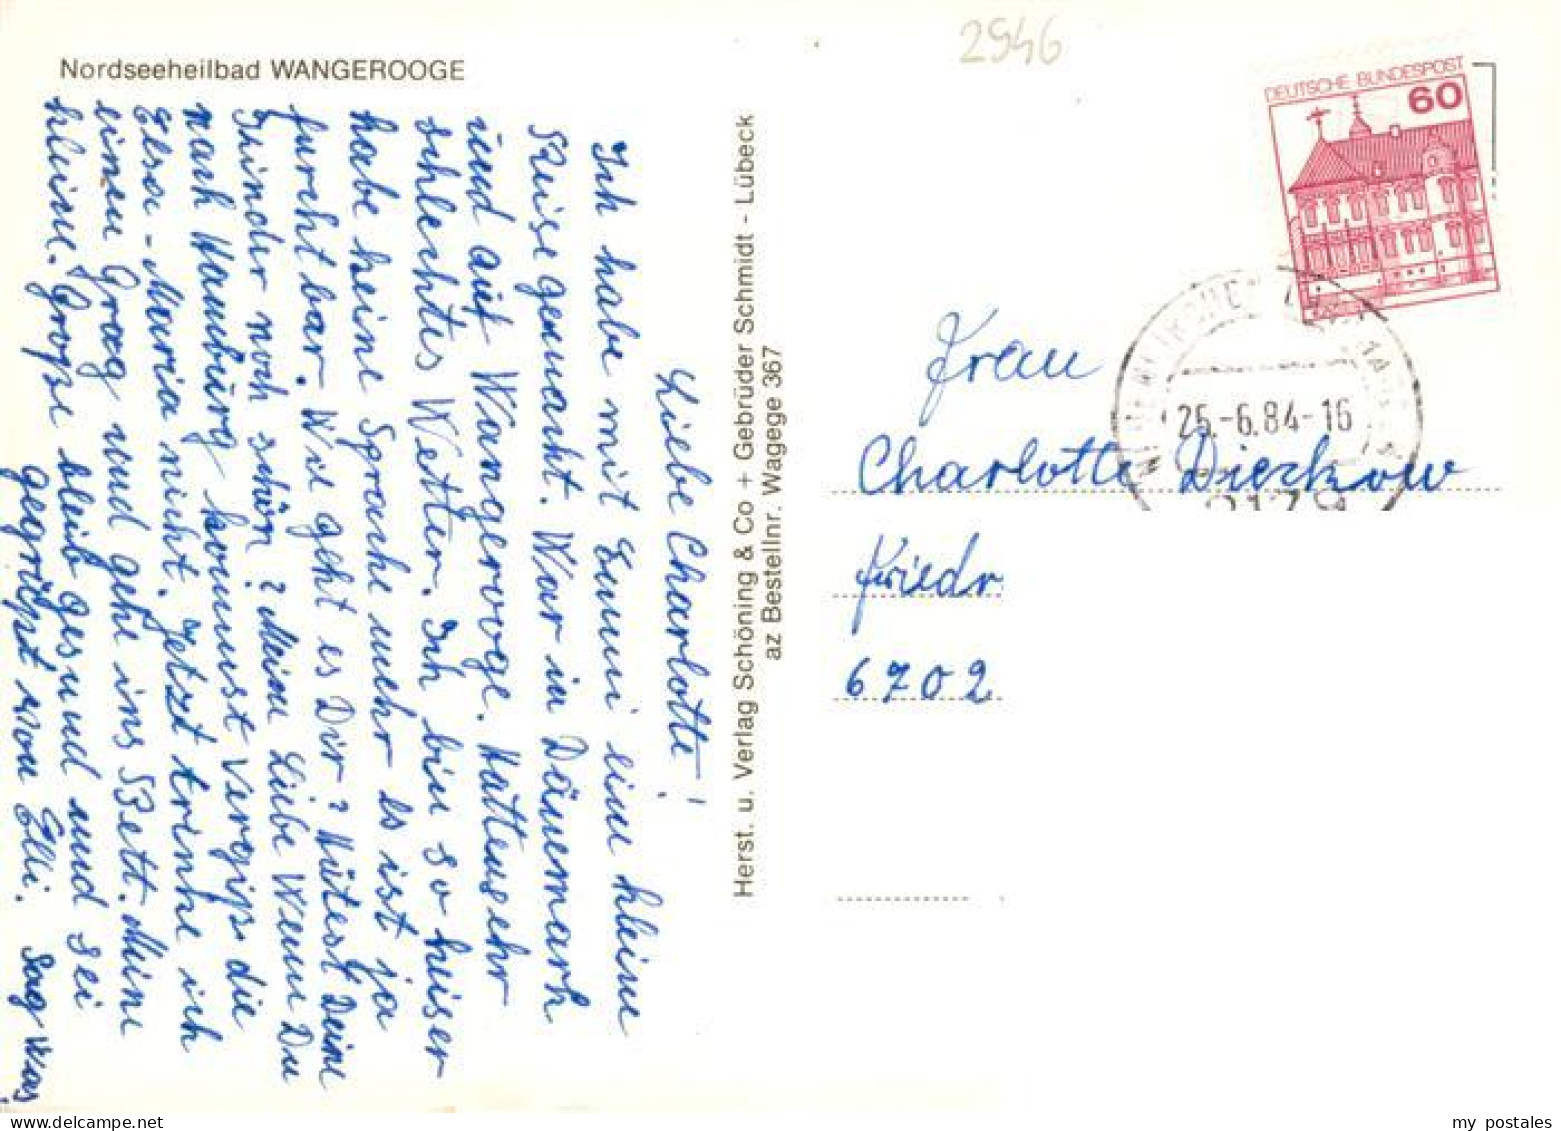 Nordseeheilbad WANGEROOGE
2946
Liebe Charlotte!
Ich habe mit Emmi eine kleine
Reise gemacht. War in Dänemark
und auf Wangerooge. Hatten sehr
schlechtes Wetter. Ich bin so heiser
habe keine Sprache mehr es ist ja
furchtbar. Wie geht es Dir? Hütest Deine
Kinder noch schön? Meine Liebe Wenn Du
nach Hamburg kommst vergiß die
Gesa-Maria nicht. Jetzt trinke ich
einen Grog und gehe ins Bett. Meine
kleine. Große bleib gesund und sei
gegrüßt von Elli. Sag was
Herst. u. Verlag Schöning & Co + Gebrüder Schmidt - Lübeck
az Bestellnr. Wagege 367
DEUTSCHE BUNDESPOST
60
25.-6.84-16
Frau
Charlotte Dierkow
Friedr.
6702
my postales